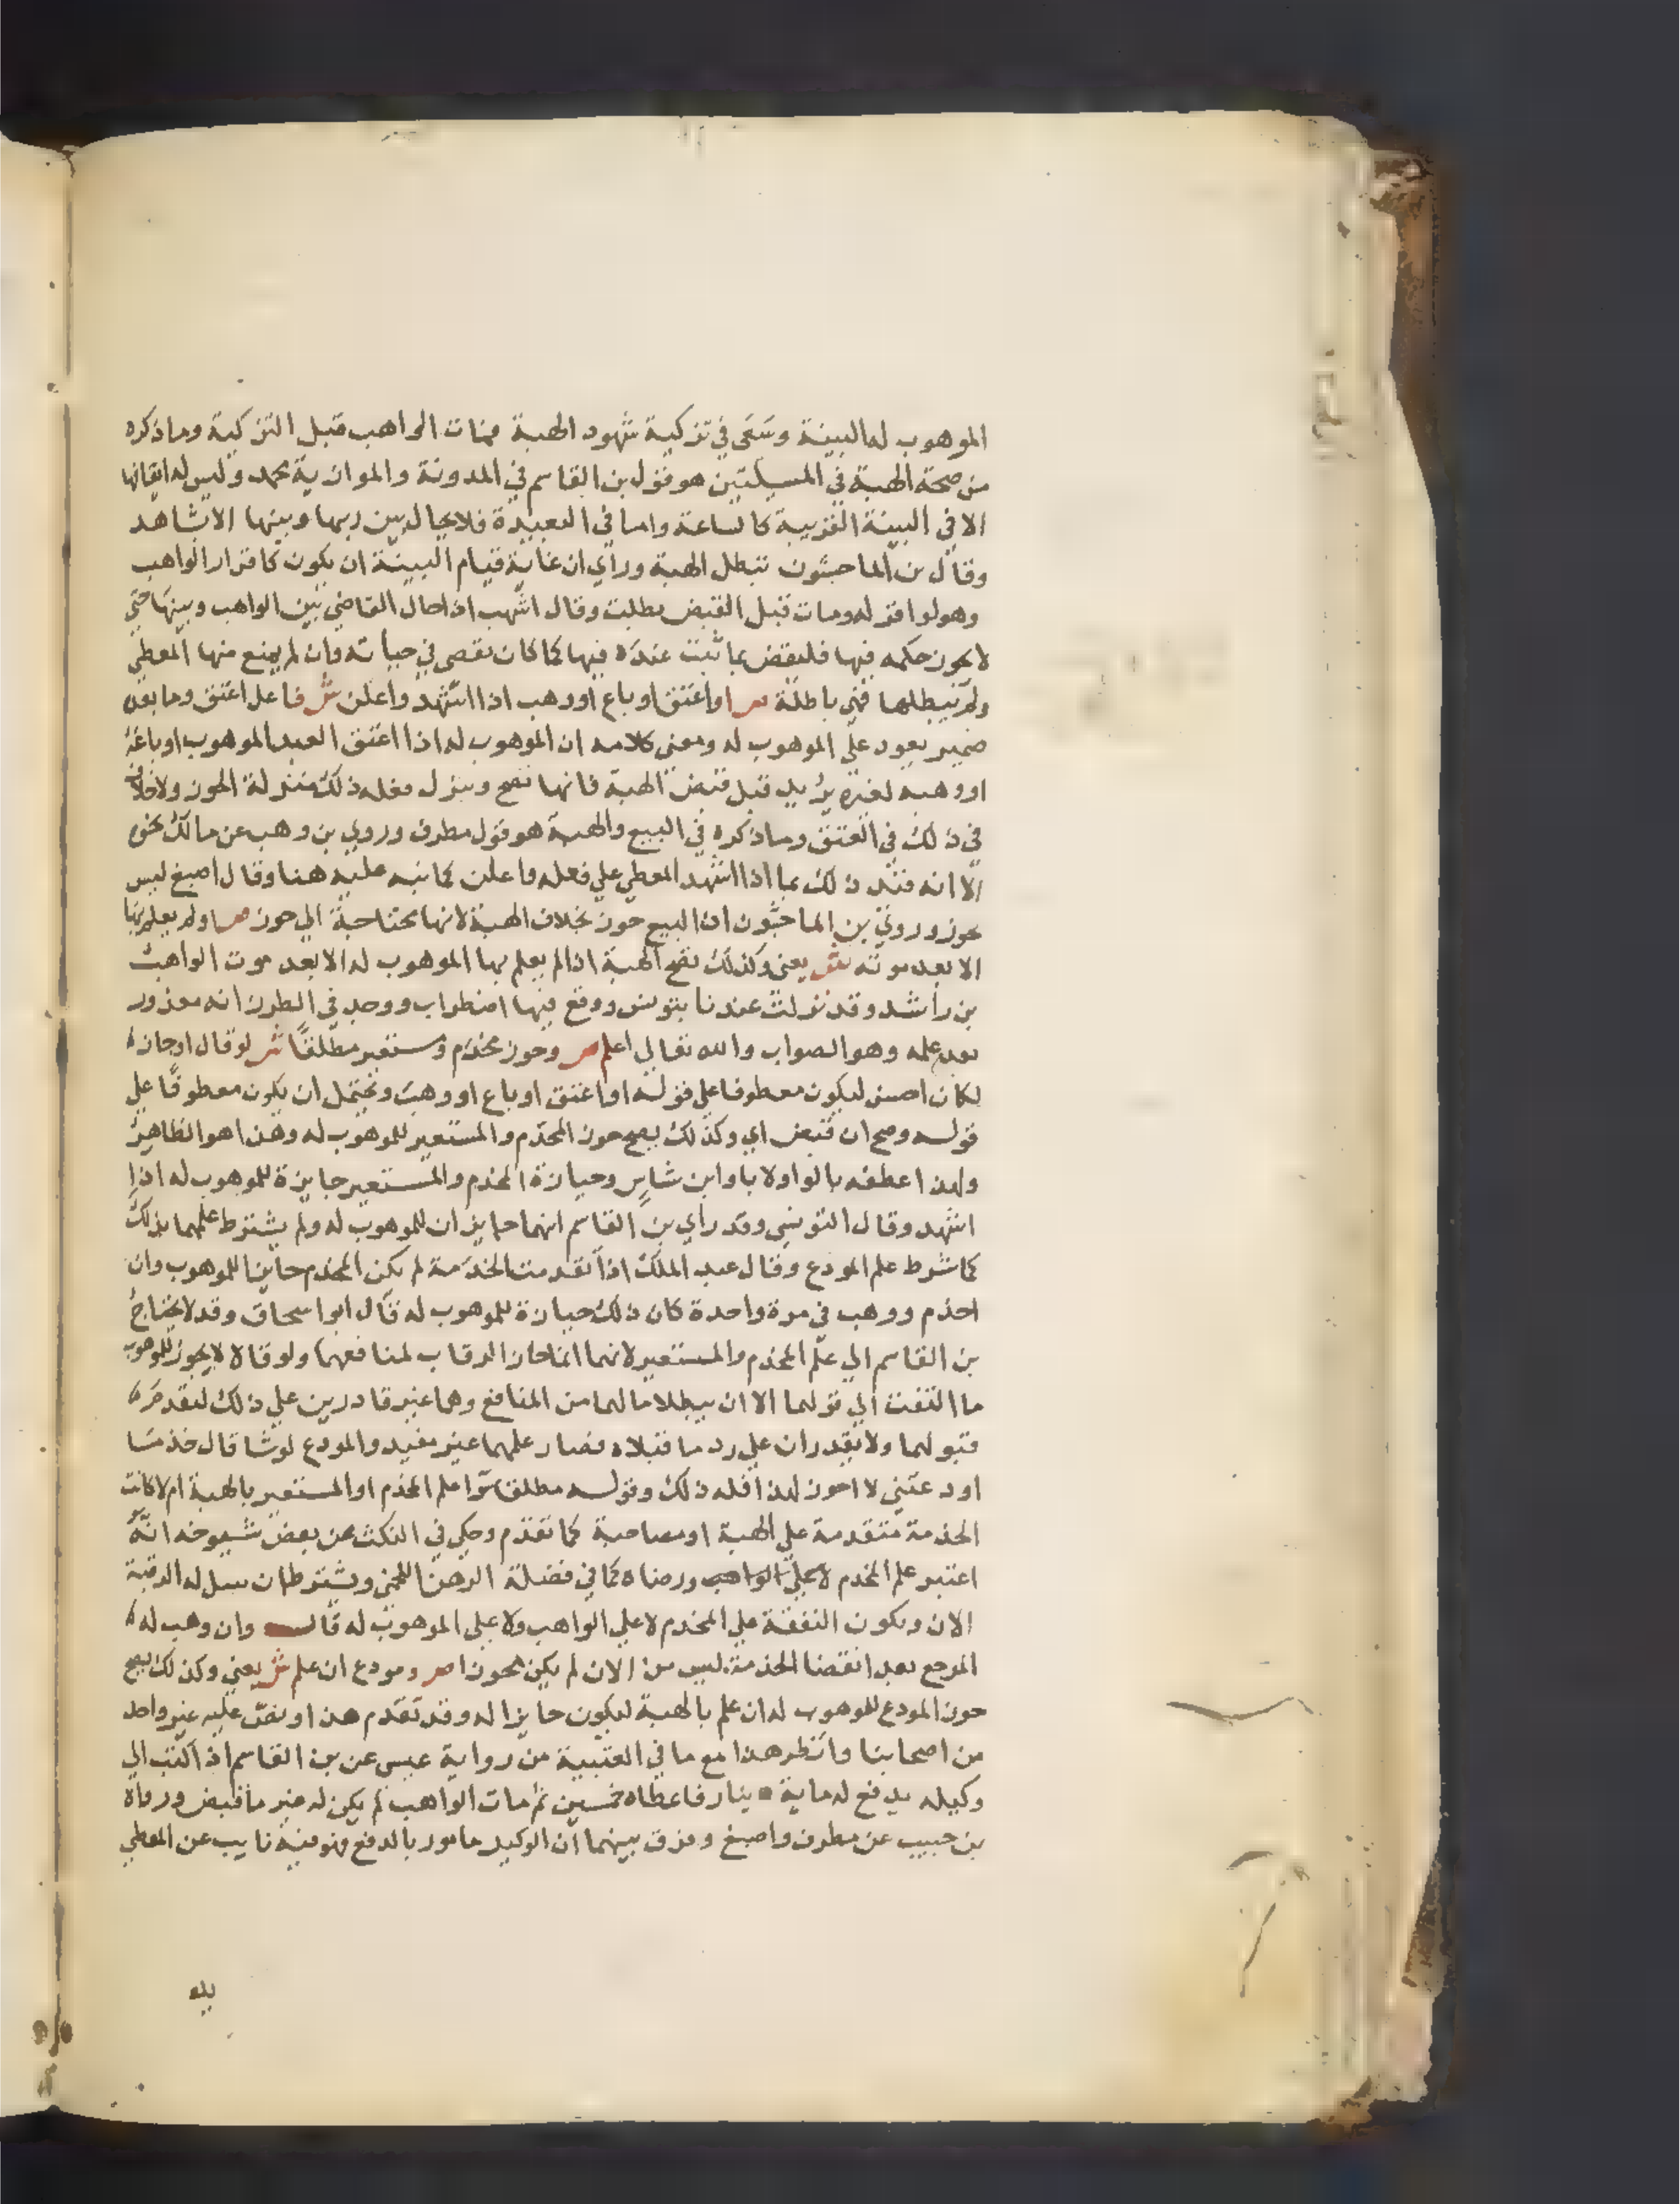 الموهوب له البينة وسَعَى في تزكية شهود الهبة فمات الواهب قبل التزكية وما ذكره
من صحة الهبة في المسيلتين هو قول بن القاسم في المدونة والموازية محمد وليس له ايقافها
الا في البينة القريبة كالساعة واما في البعيدة فلا يحال بين ربها وبينها الا بشاهد
وقال بن الماجشون تبطل الهبة وراي ان غاية قيام البينة ان يكون كاقرار الواهب
وهو لو اقر له ومات قبل القبض بطلت وقال اشهب اذا حال القاضي بين الواهب وبينها حتى
لا يجوز حكمه فيها فليقض بما ثبت عنده فيها كما كان يقضى في حياته وان لم يمنع منها المعطي
ولم يبطلها فهي باطلة ص او اعتق او باع او وهب اذا اشهد واعلن ش فاعل اعتق وما بعده
ضمير يعود علي الموهوب له ومعني كلامه ان الموهوب له اذا اعتق العبد الموهوب او باعه
او وهبه لغيره يريد قبل قبض الهبة فانها تصح وينزل فعله ذلك منزلة الحوز ولا خلاف
في ذلك في العتق وما ذكره في البيع والهبة هو قول مطرف وروي بن وهب عن مالك نحوه
الا انه قيد ذلك بما اذا اشهد المعطي علي فعله واعلن كما نبه عليه هنا وقال اصبغ ليس
بحوز وروي بن الماجشون ان البيع حوز بخلاف الهبة لانها محتاجة الي حوز ص او لم يعلم بها
الا بعد موته ش يعني وكذلك تصح الهبة اذا لم يعلم بها الموهوب له الا بعد موت الواهب
بن راشد وقد نزلت عندنا بتونس ووقع فيها اضطراب ووجد في الطرر انه معذور
بعدم علمه وهو الصواب والله تعالي اعلم ص وحوز مخدم ومستعير مطلقًا ش لو قال او حازه
لكان احسن ليكون معطوفا علي قوله او اعتق او باع او وهب ويحتمل ان يكون معطوفًا علي
قوله وصح ان قبض اي وكذلك يصح حوز المخدم والمستعير للموهوب له وهذا هو الظاهر
ولهذا عطفه بالواو لا باو ابن شاس وحيازة المخدم والمستعير جايزة للموهوب له اذا
اشهد وقال التونسي وقد راي بن القاسم انهما حايزان للموهوب له ولم يشترط علمهما بذلك
كما شرط علم المودع وقال عبد الملك اذا تقدمت الخدمة لم يكن المخدم حايزا للموهوب وان
اخدم ووهب في مرة واحدة كان ذلك حيازة للموهوب له قال ابو اسحاق وقد لا يحتاج
بن القاسم الي علم المخدم والمستعير لانهما انما حازا الرقاب لمنافعهما ولو قالا لا يحوز للموهوب
ما التفت الي قولهما الا ان يبطلا ما لهما من المنافع وهما غير قادرين علي ذلك لتقدم
قبولهما ولا يقدران علي رد ما قبلاه فصار علمهما غير مفيد والمودع لو شا قال خذ ما
اودعتني لا احوز لهذا فله ذلك وقوله مطلقا سوا علم المخدم او المستعير بالهبة ام لا كانت
الخدمة متقدمة علي الهبة او مصاحبة كما تقدم وحكي في النكت عن بعض شيوخه انه
اعتبر علم المخدم ورضاه كما في فضلة الرهن اللخمي ويشترط ان يسل له الرقبة
الان وتكون النفقة علي المخدم لا علي الواهب ولا علي الموهوب له قال وان وهب له
المرجع بعد انقضا الخدمة ليس من الان لم يكن محوزا ص ومودع ان علم ش يعني وكذلك يصح
حوز المودع للموهوب له ان علم بالهبة ليكون حايزا له وقد تقدم هذا ونص عليه غير واحد
من اصحابنا وانظر هذا مع ما في العتبية من رواية عيسى عن بن القاسم اذا كتب الي
وكيله يدفع له ماية دينار فاعطاه خمسين ثم مات الواهب لم يكن له غير ما قبض ورواه
بن حبيب عن مطرف واصبغ وفرق بينهما ان الوكيل مامور بالدفع فهو فيه نايب عن المعطي